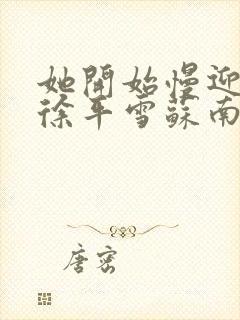 她開始慢迎
徐平雪蘇南
唐密